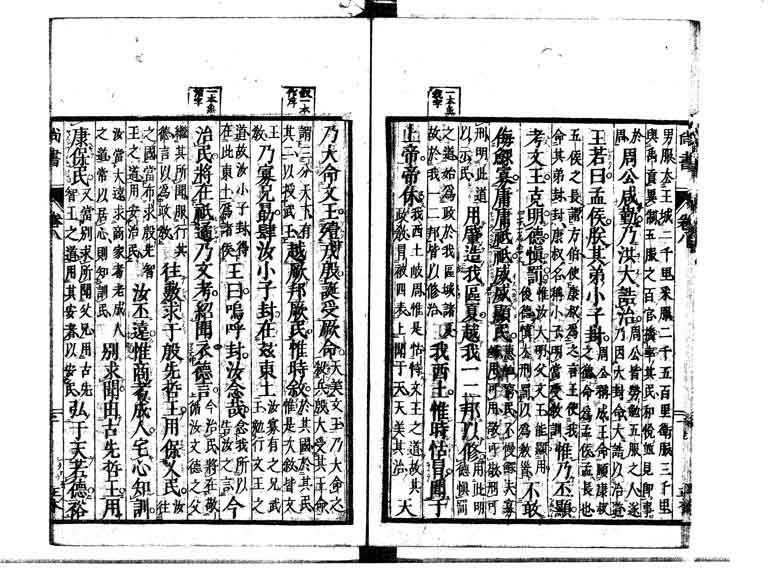 尚書 卷八
男服去王城二千里采服二千五百里衛服三千里
與禹貢異制五服之百官播率其民和悅並見即事
於周
周公咸勤乃洪大誥治
周公皆勞勉五服之人遂
乃因大封命大誥以治道
王若曰孟侯朕其弟小子封
周公稱成王命順康叔
之德命為孟侯孟長也
五侯之長謂方伯使康叔為之言王使我
命其弟封封康叔名稱小子明當受教訓
惟乃丕顯
考文王克明德慎罰
惟汝大明父文王能顯用
俊德慎去刑罰以為教首
不敢
侮鰥寡庸庸祗祗威威顯民
惠恤窮民不慢鰥夫寡
婦用可用敬可敬刑可
刑明此道
以示民
用肇造我區夏越我一二邦以修
用此明
德慎罰
之道始為政於我區域諸夏
故於我一二邦皆以修治
我西土惟時怙冒聞于
上帝帝休
我西土岐周惟是怙恃文王之道故其
政教冒被四表上聞于天天美其治
天
乃大命文王殪戎殷誕受厥命
天美文王乃大命之
殺兵殷大受其王命
謂三分天下有
其二以授武王
越厥邦厥民惟時敘
於其國於其民
惟是次敘皆文
王教
乃寡兄勖肆汝小子封在茲東土
汝寡有之兄武
王勉行文王之
道故汝小子封得
在此東土為諸侯
王曰嗚呼封汝念哉
念我所以
告汝之言
今
治民將在祗遹乃文考紹聞衣德言
今治民將在敬
循汝文德之父
繼其所聞服行其
德言以為政教
往敷求于殷先哲王用保乂民
汝往
之國當布求殷先智
王之道用安治民
汝丕遠惟商耇成人宅心知訓
汝當大遠求商家耇老成人
之道常以居心則知訓民
別求聞由古先哲王用
康保民
又當別求所聞父兄用古先
智王之道用其安者以安民
弘于天若德裕
尚書 卷八